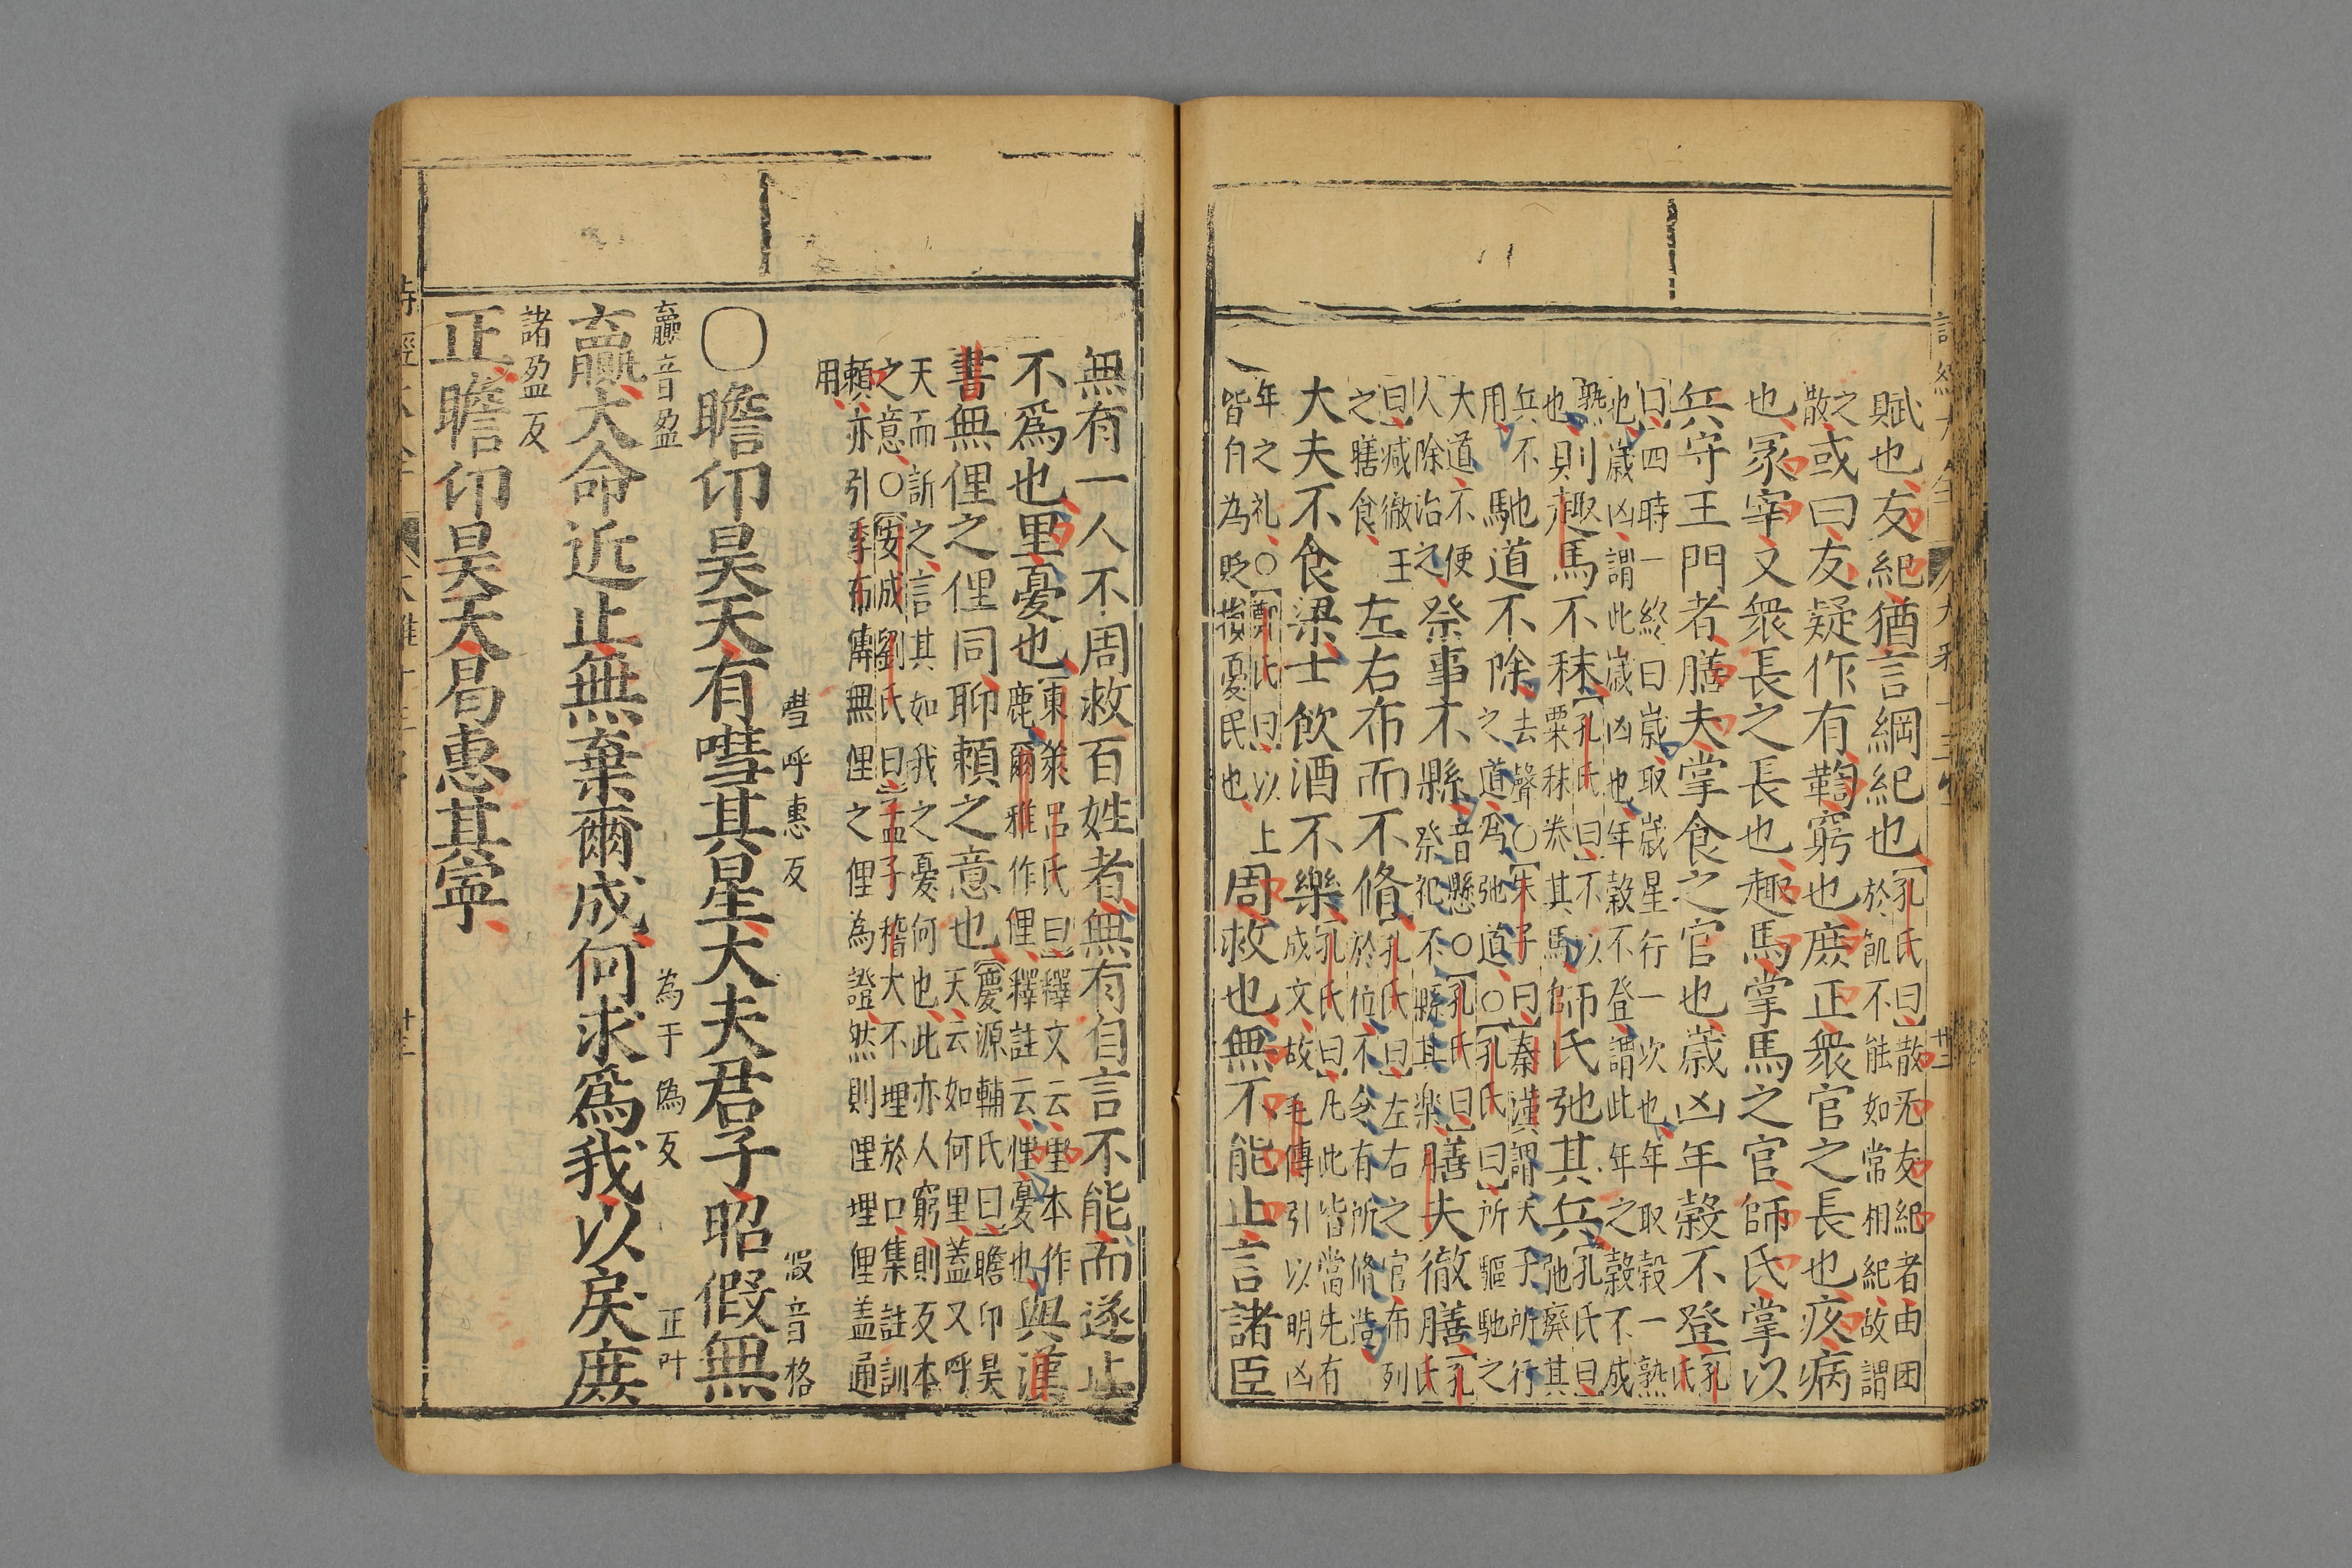 賦也友紀猶言綱紀也孔氏曰散无友紀者由困
於飢不能如常相紀故謂
之
散或曰友疑作有鞫窮也庶正衆官之長也疚病
也冢宰又衆長之長也趣馬掌馬之官師氏掌以
兵守王門者膳夫掌食之官也歲凶年榖不登孔
氏
曰四時一終曰歲取歲星行一次也年取穀一熟
也歲凶謂此歲凶也年穀不登謂此年之穀不成
熟
也則趣馬不秣孔氏曰不以
粟秣养其馬師氏弛其兵孔氏曰
弛廃其
兵不
用馳道不除去聲○朱子曰秦漢謂天子所行
之道為弛道○孔氏曰所驅馳之
大道不便
人除治之祭事不縣音懸○孔氏曰
祭祀不縣其楽膳夫徹膳孔
氏
曰减徹王
之膳食左右布而不脩孔氏曰左右之官布列
於位不令有所脩造
大夫不食梁士飲酒不樂孔氏曰凡此皆當先有
成文故毛傳引以明凶
年之礼○鄭氏曰以上
皆自為貶損憂民也周救也無不能止言諸臣
無有一人不周救百姓者無有自言不能而遂止
不爲也里憂也東萊呂氏曰釋文云里本作
鹿爾雅作悝釋註云悝憂也與漢
書無俚之俚同聊頼之意也慶源輔氏曰瞻卬昊
天云如何里蓋又呼
天而訴之言其如我之憂何也此亦人窮則反本
之意○安成劉氏曰孟子稽大不理於口集註訓
頼亦引季布傳無俚之俚為證然則俚理俚盖通
用
○瞻卬昊天有嘒其星大夫君子昭假無
嘒呼惠反
假音格
贏大命近止無棄爾成何求爲我以戾庶
贏音盈
為于偽反
正叶
諸盈反
正瞻卬昊天曷惠其寧